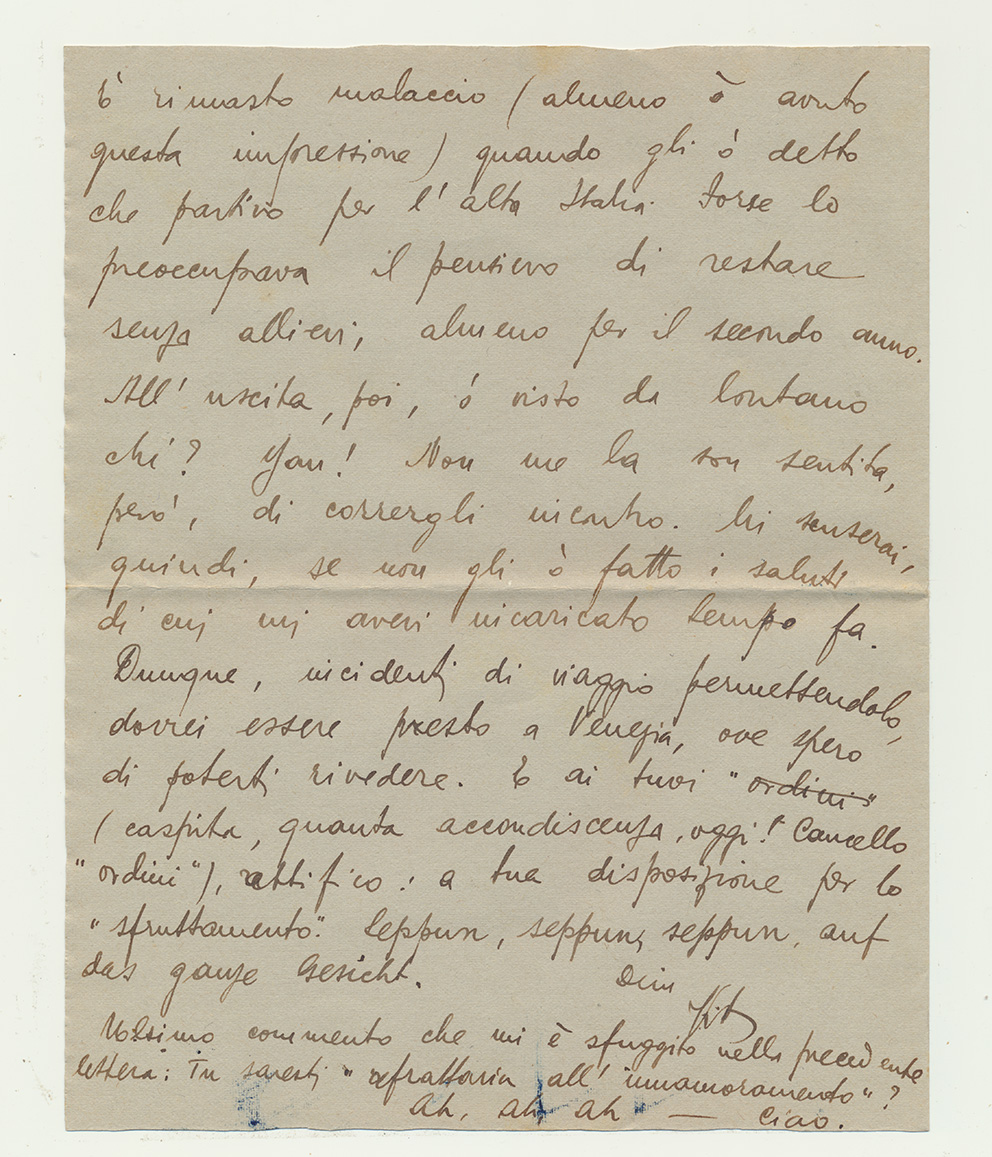 È rimasto malaccio (almeno ò avuto
questa impressione) quando gli ò detto
che partivo per l'alta Italia. Forse lo
preoccupava il pensiero di restare
senza allievi, almeno per il secondo anno.
All'uscita, poi, ó visto da lontano
chi? Yan! Non me la son sentita,
però, di corrergli incontro. Mi scuserai,
quindi, se non gli ò fatto i saluti
di cui mi avevi incaricato tempo fa.
Dunque, incidenti di viaggio permettendolo,
dovrei essere presto a Venezia, ove spero
di poterti rivedere. E ai tuoi "ordini"
(caspita, quanta accondiscenza, oggi! Cancello
"ordini"), rettifico: a tua disposizione per lo
"sfruttamento". Seppun, seppun, seppun, auf
das ganze Gesicht.
Dein
commento che mi è sfuggito nella precedente
lettera: Tu saresti "refrattaria all'innamoramento"?
Ah, ah, ah — Ciao.